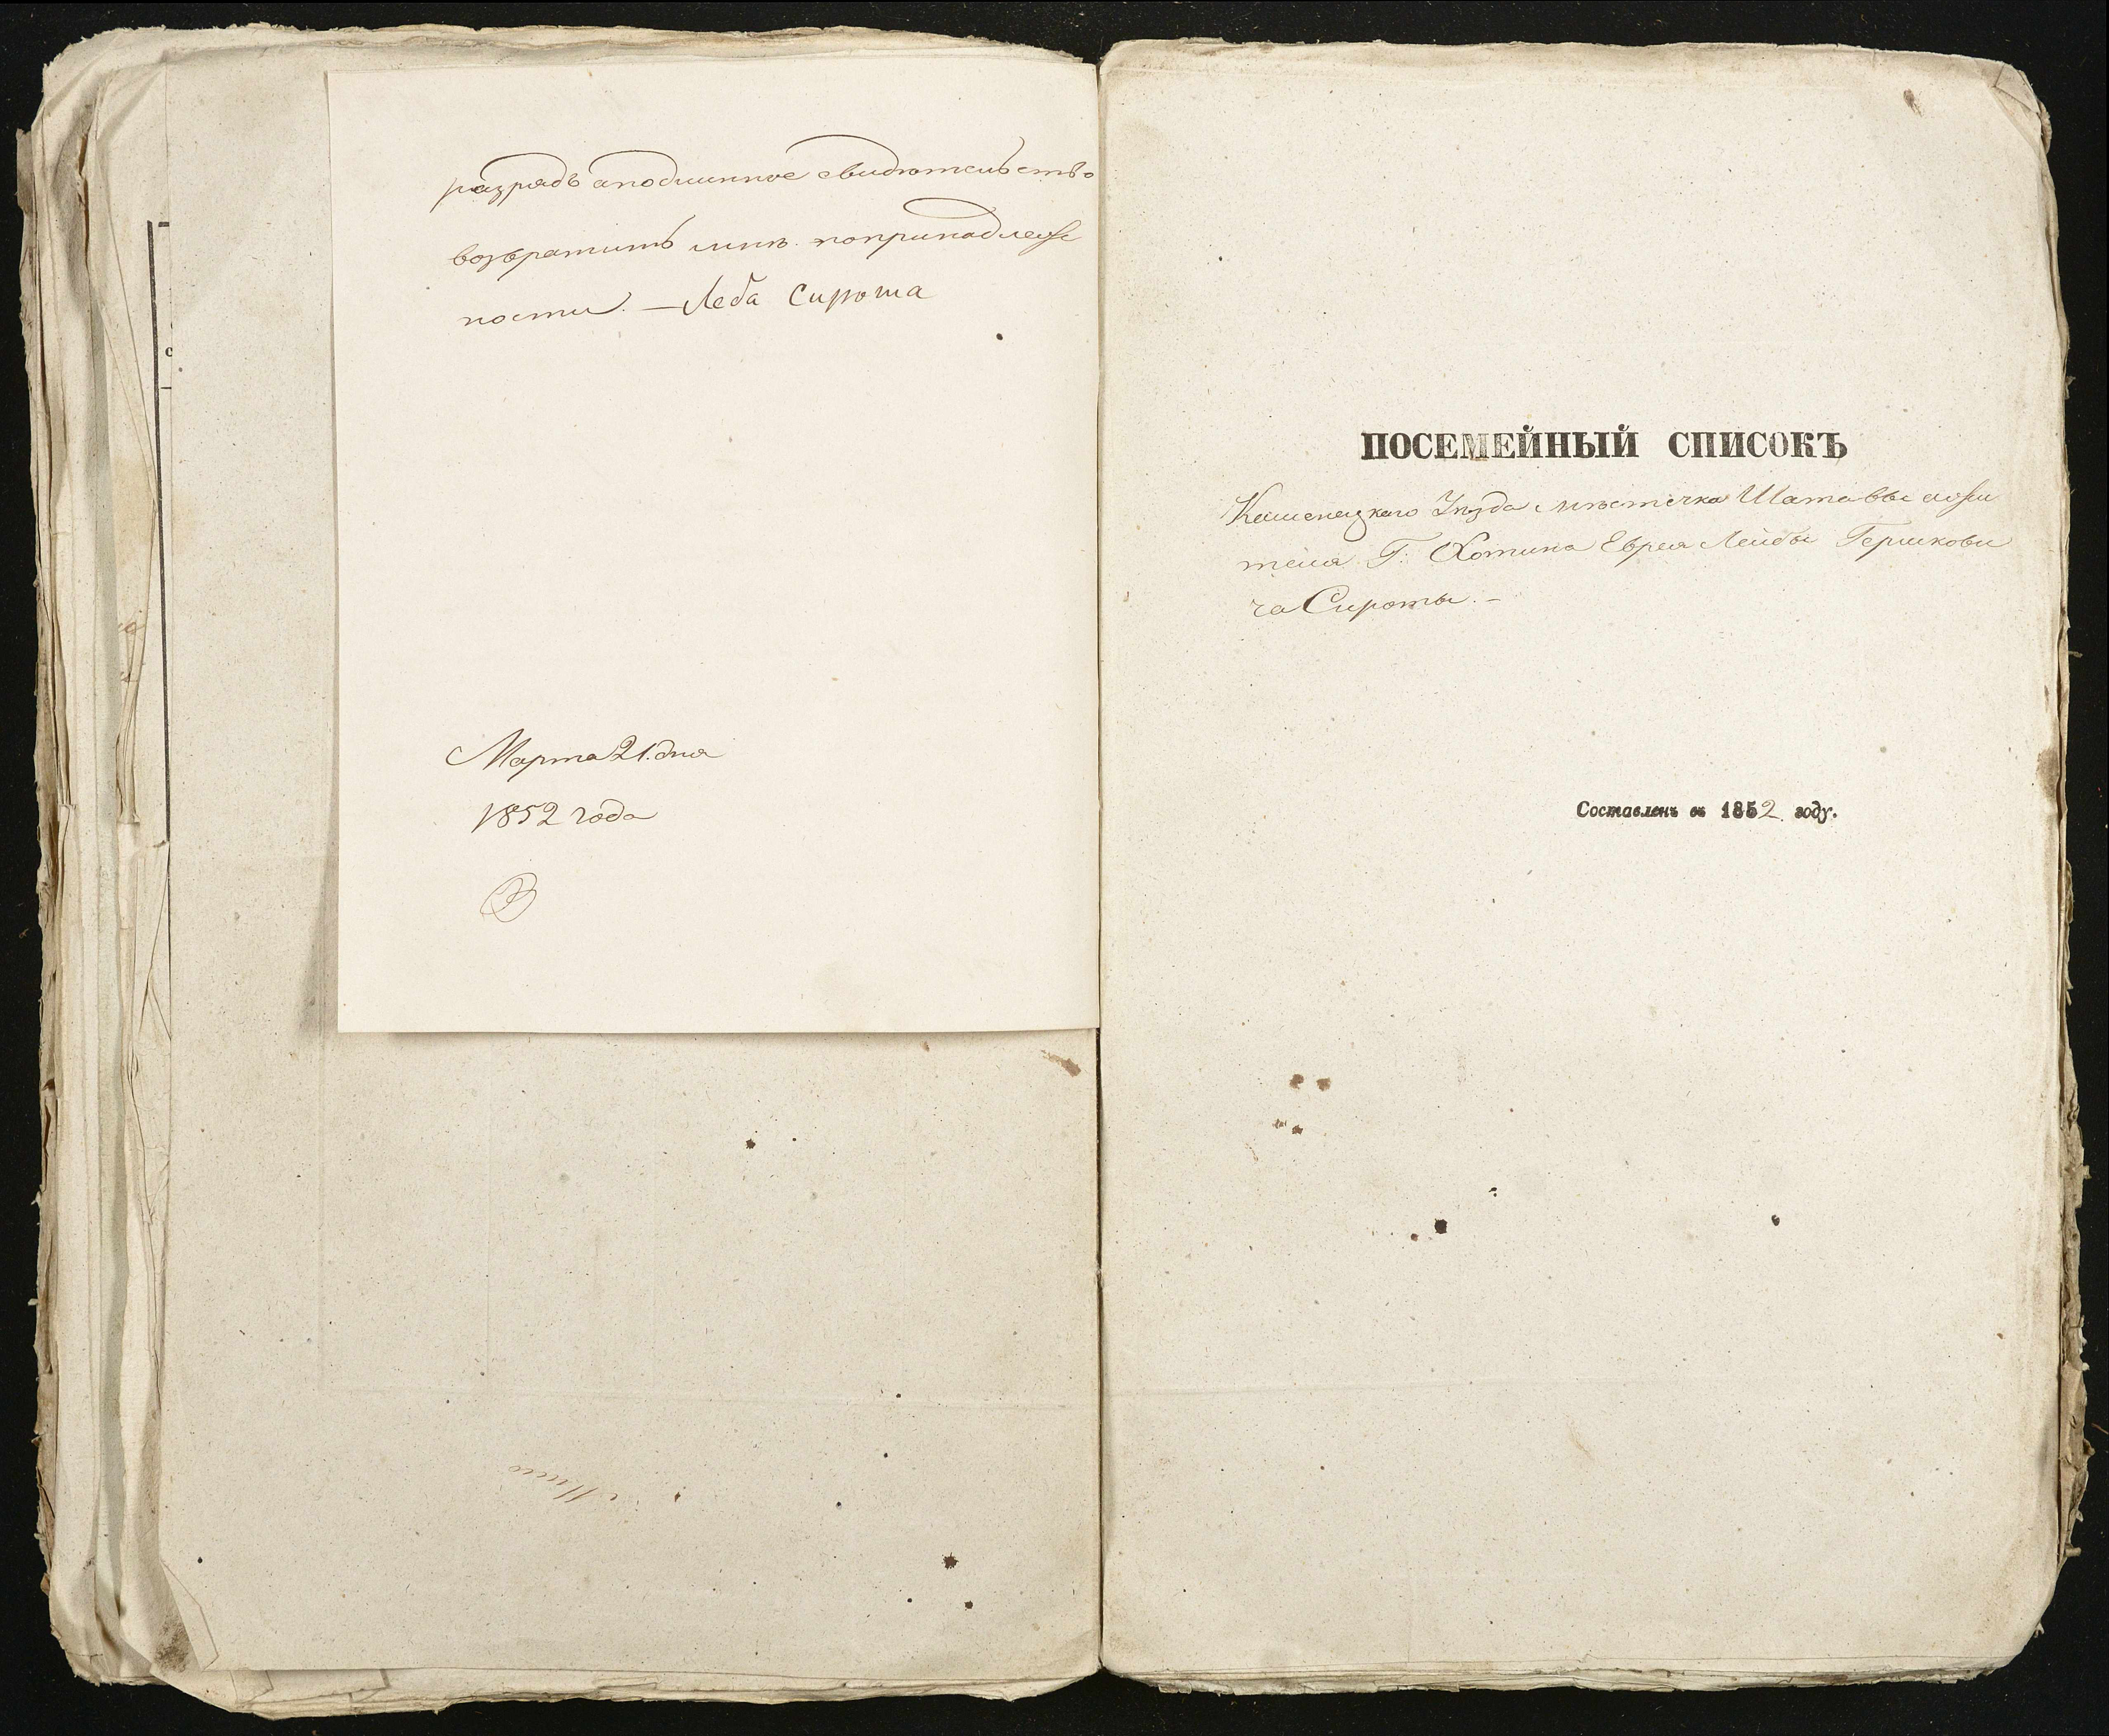 разрядъ аподлинное свидѣтельство
возвратить мнѣ попринадлеж
ности. — Леба Сирота
Марта 21. дня
1852 года
ПОСЕМЕЙНЫЙ СПИСОКЪ
Каменецкаго Уѣзда мѣстечка Шатавы жи
теля Г. Хотина Еврея Лейбы Гершкови
ча Сироты. —
Составленъ въ 1852 году.